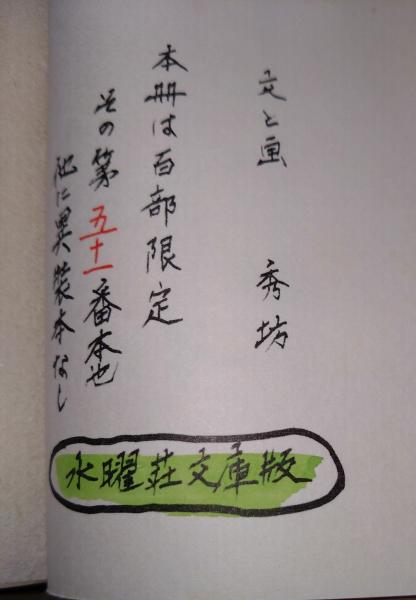 文と画 秀坊
本冊は百部限定
その第五十一番本也
他に異装本なし
水曜荘文庫版